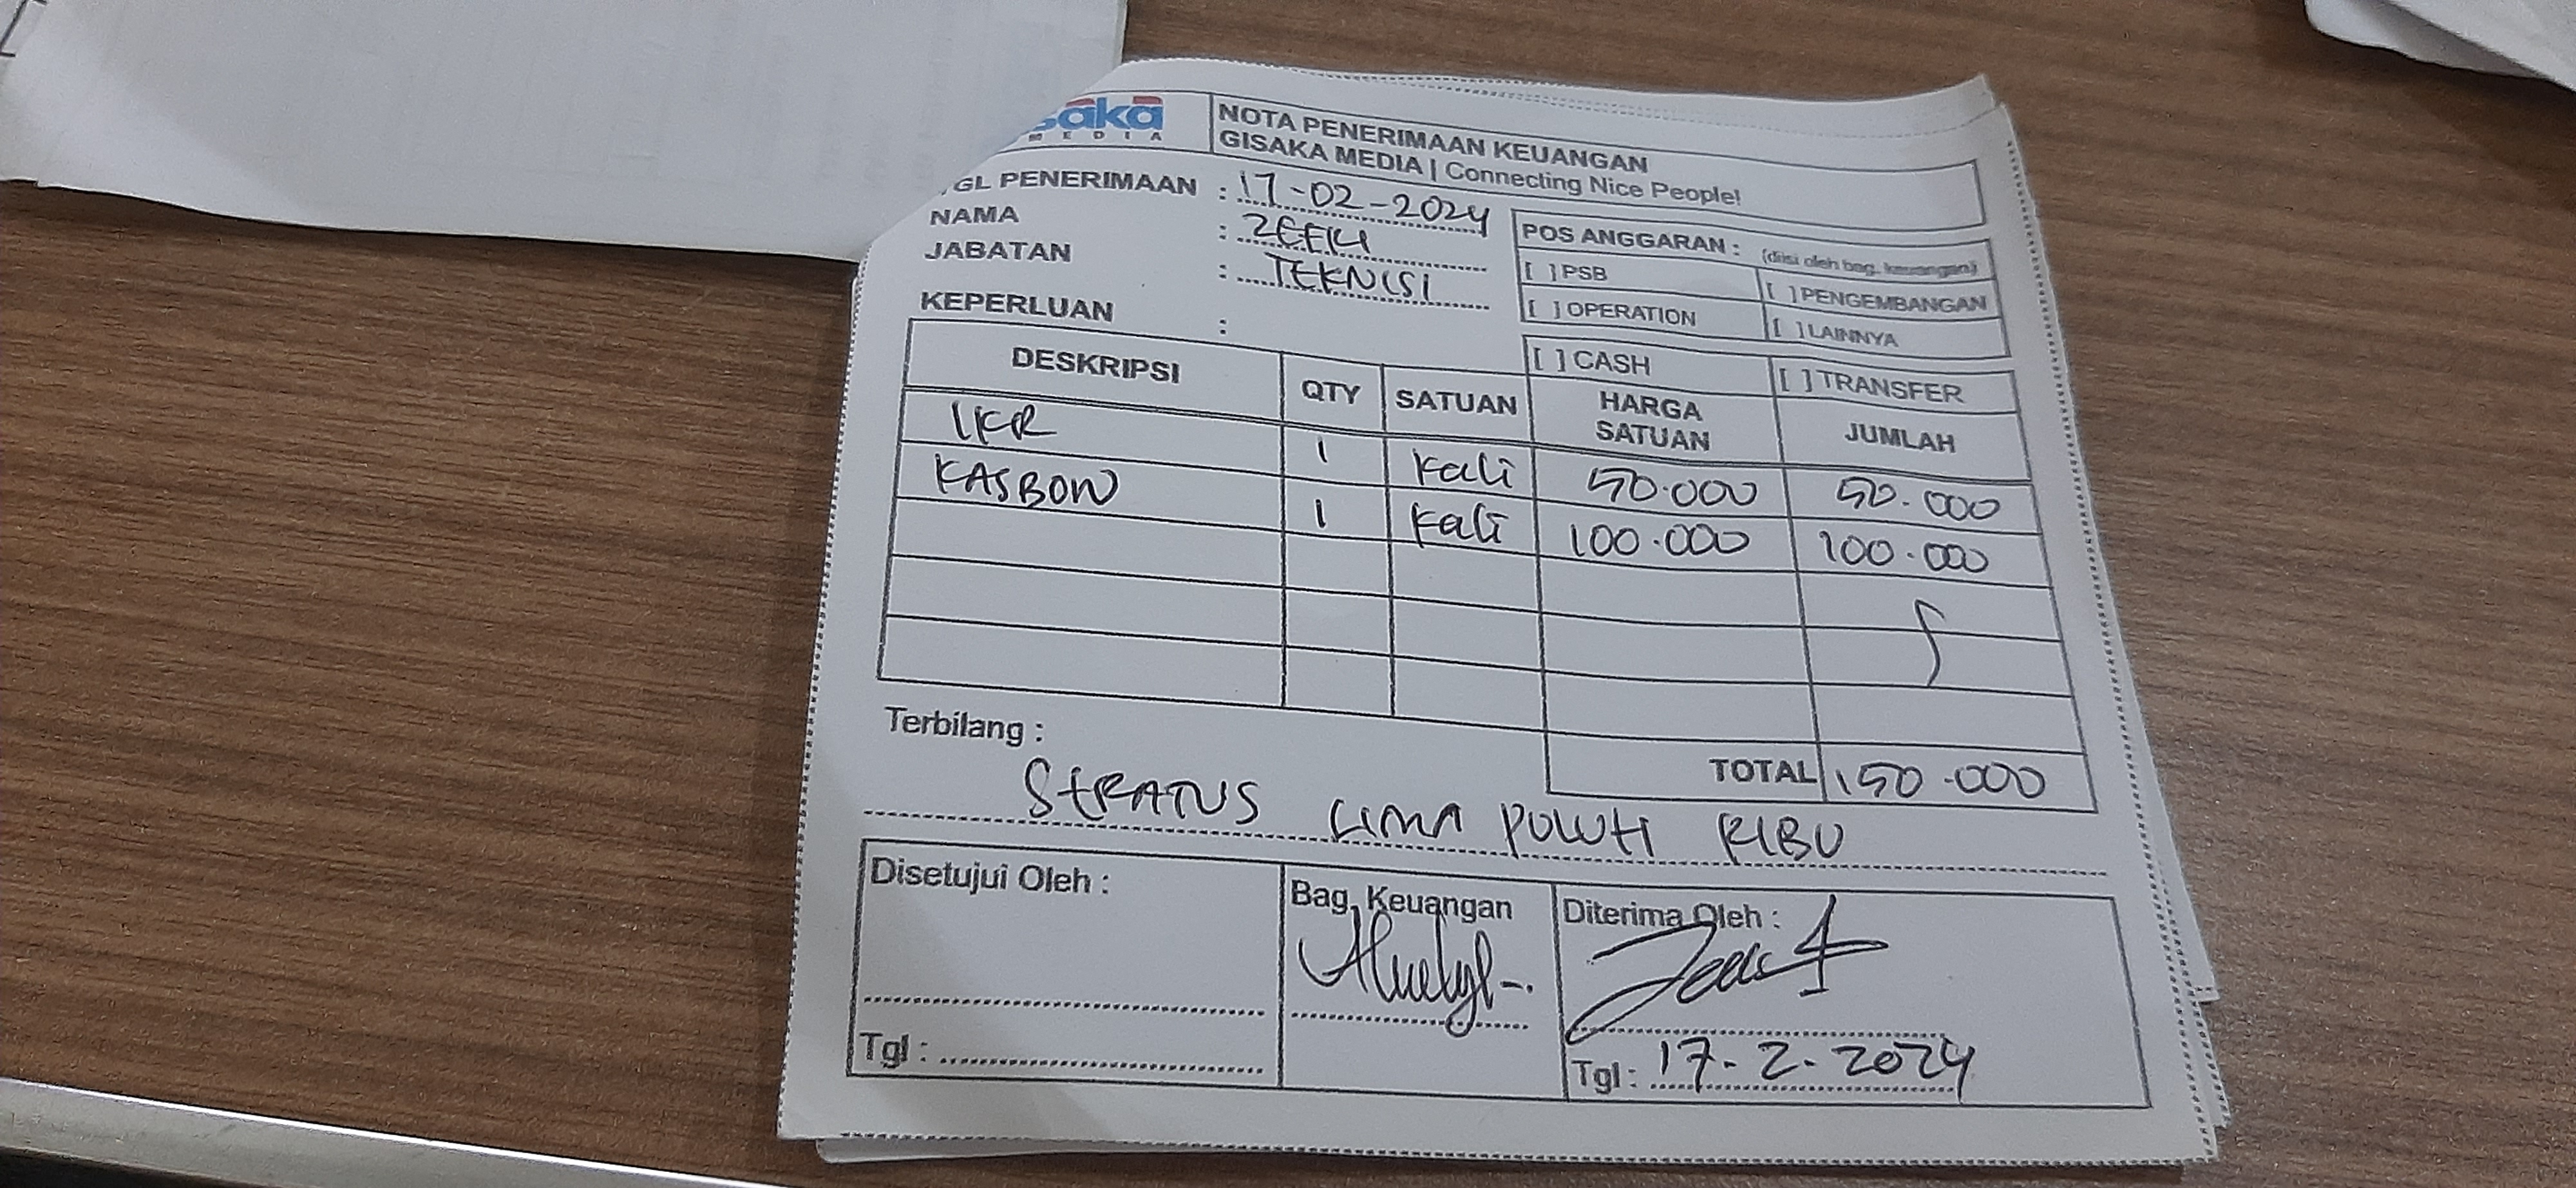 saka
MEDIA
NOTA PENERIMAAN KEUANGAN
GISAKA MEDIA | Connecting Nice People!
GL PENERIMAAN : 17-02-2024
NAMA :
JABATAN : TEKNISI
KEPERLUAN :
POS ANGGARAN : (diisi oleh bag. keuangan)
[ ] PSB [ ] PENGEMBANGAN
[ ] OPERATION [ ] LAINNYA
[ ] CASH [ ] TRANSFER
DESKRIPSI QTY SATUAN HARGA SATUAN JUMLAH
IKR 1 Kali 50.000 50.000
KASBON 1 Kali 100.000 100.000
TOTAL 150.000
Terbilang :
SERATUS LIMA PULUH RIBU
Disetujui Oleh : Bag. Keuangan Diterima Oleh :
Tgl : Tgl : 17-2-2024